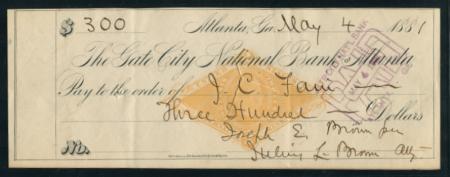 $ 300 Atlanta, Ga. May 4 1881
The Gate City National Bank, Atlanta
Pay to the order of J. C. Fain
Three Hundred Dollars
PAID
MAY 4
Joseph E. Brown per
No. Julius L. Brown Atty